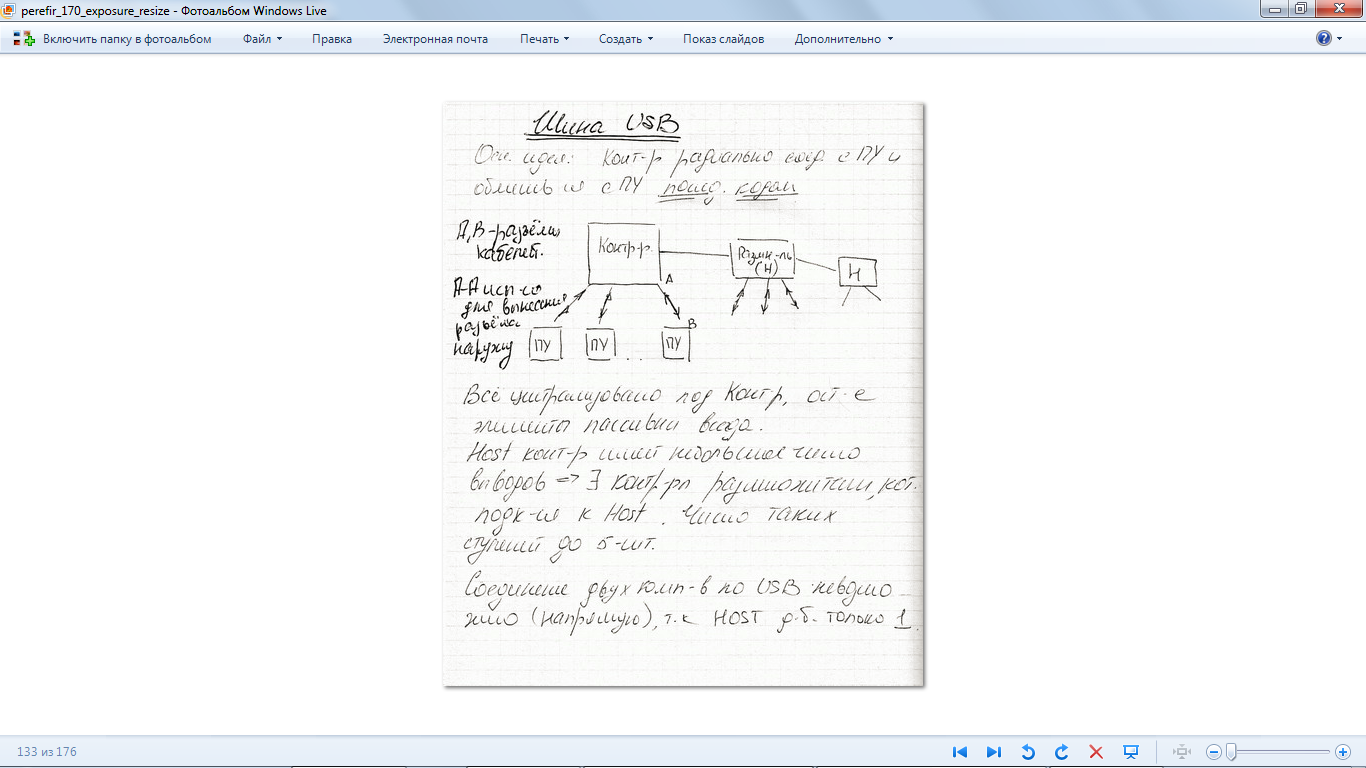 perefir_170_exposure_resize - Фотоальбом Windows Live
Включить папку в фотоальбом Файл Правка Электронная почта Печать Создать Показ слайдов Дополнительно
Шина USB
Осн. идея: Конт-р радиально соед. с ПУ и
обмен-ся с ПУ посл. кодом
А,В-разъёмы
кабелей.
А-А исп-ся
для вынесения
разъёма
наружу
Контр-р.
А
Размн-ль
(H)
H
В
ПУ
ПУ
. .
ПУ
Всё централизовано под Контр, ост-е
элементы пассивны всегда.
Host конт-р имеет небольшое число
выводов => ∃ контр-ры размножители, кот.
подк-ся к Host. Число таких
ступеней до 5-шт.
Соединение двух комп-в по USB невозмо
жно (напрямую), т.к HOST д.б. только 1.
133 из 176